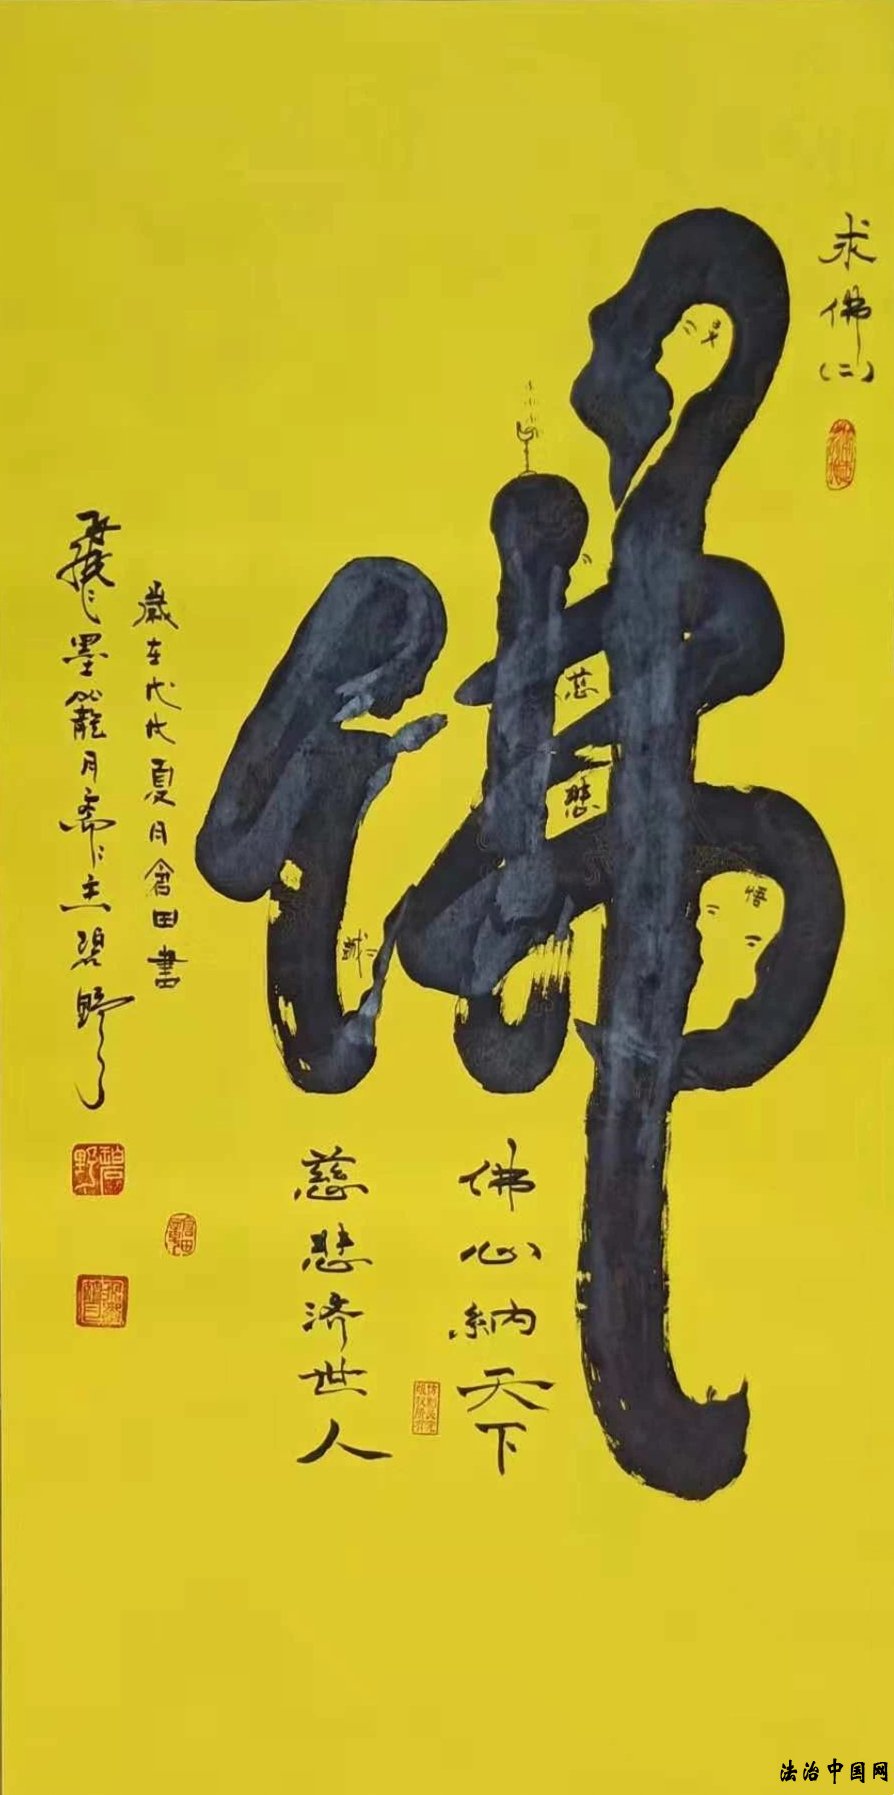 求佛(二)
佛
慈
悲
悟
誠
佛心納天下
慈悲济世人
歲在戊戌夏月倉田書
墨 月斋主碧野
法治中国网